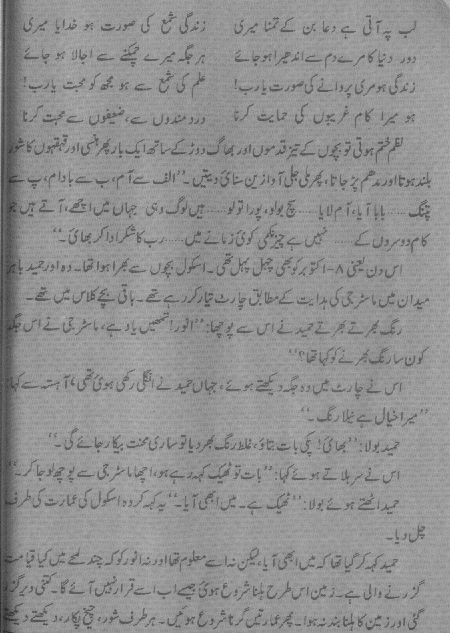 لب پہ آتی ہے دعا بن کے تمنا میری    زندگی شمع کی صورت ہو خدایا میری
دور دنیا کا مرے دم سے اندھیرا ہو جائے    ہر جگہ میرے چمکنے سے اجالا ہو جائے
زندگی ہو مری پروانے کی صورت یا رب!    علم کی شمع سے ہو مجھ کو محبت یا رب!
ہو میرا کام غریبوں کی حمایت کرنا    دردمندوں سے، ضعیفوں سے محبت کرنا
نظم ختم ہوتی تو بچوں کے تیز قدموں اور بھاگ دوڑ کے ساتھ ایک بار پھر ہنسی اور قہقہوں کا شور
بلند ہوتا اور مدھم پڑ جاتا، پھر ملی جلی آوازیں سنائی دیتیں۔ ”الف سے آم، ب سے بادام، پ سے
پتنگ ...... بابا آیا، آم لایا ...... سچ بولو، پورا تولو ...... ہیں لوگ وہی جہاں میں اچھے، آتے ہیں جو
کام دوسروں کے ...... نہیں ہے چیز نکمی کوئی زمانے میں ...... رب کا شکر ادا کر بھائی۔“
اس دن یعنی ۸-اکتوبر کو بھی چہل پہل تھی۔ اسکول بچوں سے بھرا ہوا تھا۔ وہ اور حمید باہر
میدان میں ماسٹر جی کی ہدایت کے مطابق چارٹ تیار کر رہے تھے۔ باقی بچے کلاس میں تھے۔
رنگ بھرتے بھرتے حمید نے اس سے پوچھا: ”انور! تمھیں یاد ہے، ماسٹر جی نے اس جگہ
کون سا رنگ بھرنے کو کہا تھا؟“
اس نے چارٹ میں وہ جگہ دیکھتے ہوئے، جہاں حمید نے انگلی رکھی ہوئی تھی، آہستہ سے کہا:
”میرا خیال ہے نیلا رنگ۔“
حمید بولا: ”بھائی! پکی بات بتاؤ، غلط رنگ بھر دیا تو ساری محنت بیکار جائے گی۔“
اس نے سر ہلاتے ہوئے کہا: ”بات تو ٹھیک کہہ رہے ہو، اچھا ماسٹر جی سے پوچھ لو جا کر۔“
حمید اٹھتے ہوئے بولا: ”ٹھیک ہے۔ میں ابھی آیا۔“ یہ کہہ کر وہ اسکول کی عمارت کی طرف
چل دیا۔
حمید کہہ کر گیا تھا کہ میں ابھی آیا، لیکن نہ اسے معلوم تھا اور نہ انور کو کہ چند لمحے میں کیا قیامت
گزرنے والی ہے۔ زمین اس طرح ہلنا شروع ہوئی جیسے اب اسے قرار نہیں آئے گا۔ کتنی دیر گزر
گئی اور زمین کا ہلنا بند نہ ہوا۔ پھر عمارتیں گرنا شروع ہوئیں۔ ہر طرف شور، چیخ پکار، دیکھتے دیکھتے